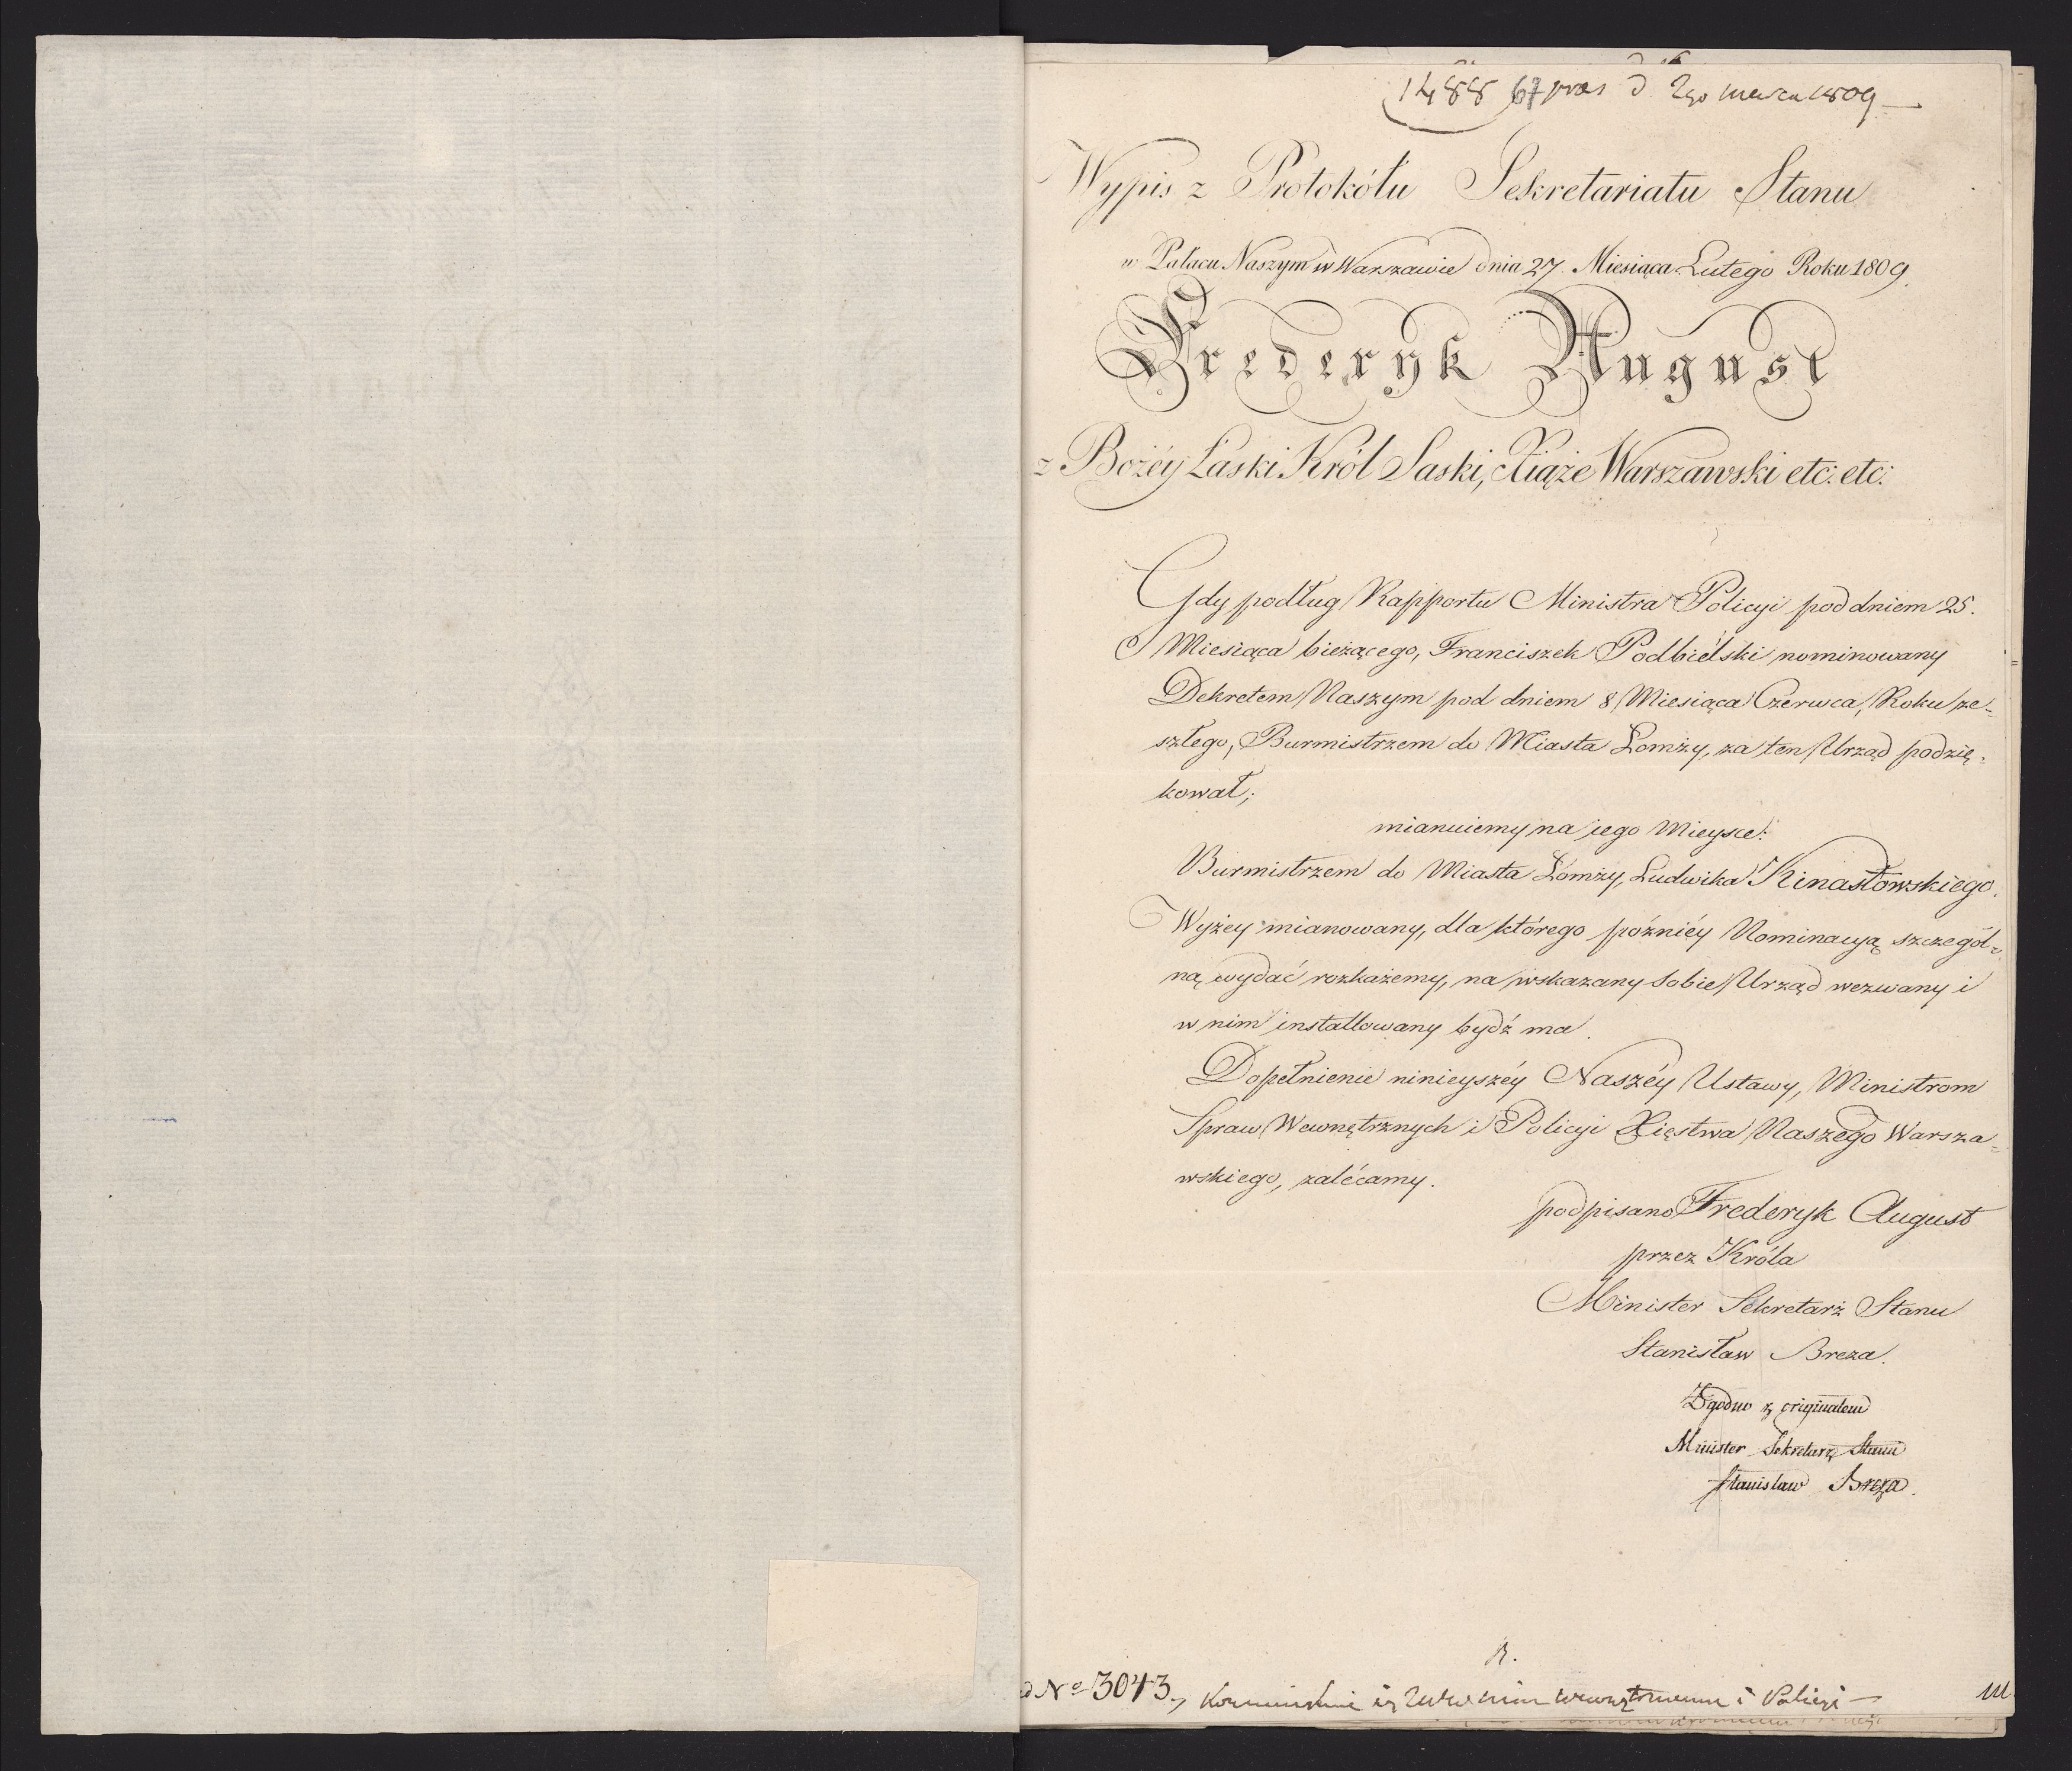 1488 67 pras d 2go marca 1809
Wypis z Protokółu Sekretariatu Stanu
w Pałacu Naszym w Warszawie dnia 27. Miesiąca Lutego Roku 1809.
Frederyk August
z Bożéy Łaski Król Saski, Xiąże Warszawski etc: etc:
Gdy podług Rapportu Ministra Policyi pod dniem 25.
Miesiąca bieżącego, Franciszek Podbielski nominowany
Dekretem Naszym pod dniem 8 Miesiąca Czerwca, Roku ze-
szłego, Burmistrzem do Miasta Łomży, za ten Urząd podzię-
kował;
mianuiemy na jego Mieysce:
Burmistrzem do Miasta Łomży, Ludwika Kinastowskiego.
Wyżey mianowany, dla którego późniéy Nominacyą szczegól-
ną, wydać rozkażemy, na wskazany sobie Urząd wezwany i
w nim installowany bydź ma.
Dopełnienie ninieyszéy Naszéy Ustawy, Ministrom
Spraw Wewnętrznych i Policyi Xięstwa Naszego Warsza-
wskiego, zalécamy.
podpisano Frederyk August
przez Króla
Minister Sekretarz Stanu
Stanisław Breza.
Zgodno z originałem
Minister Sekretarz Stanu
Stanisław Breza.
R.
ad No 3043, i Policyi